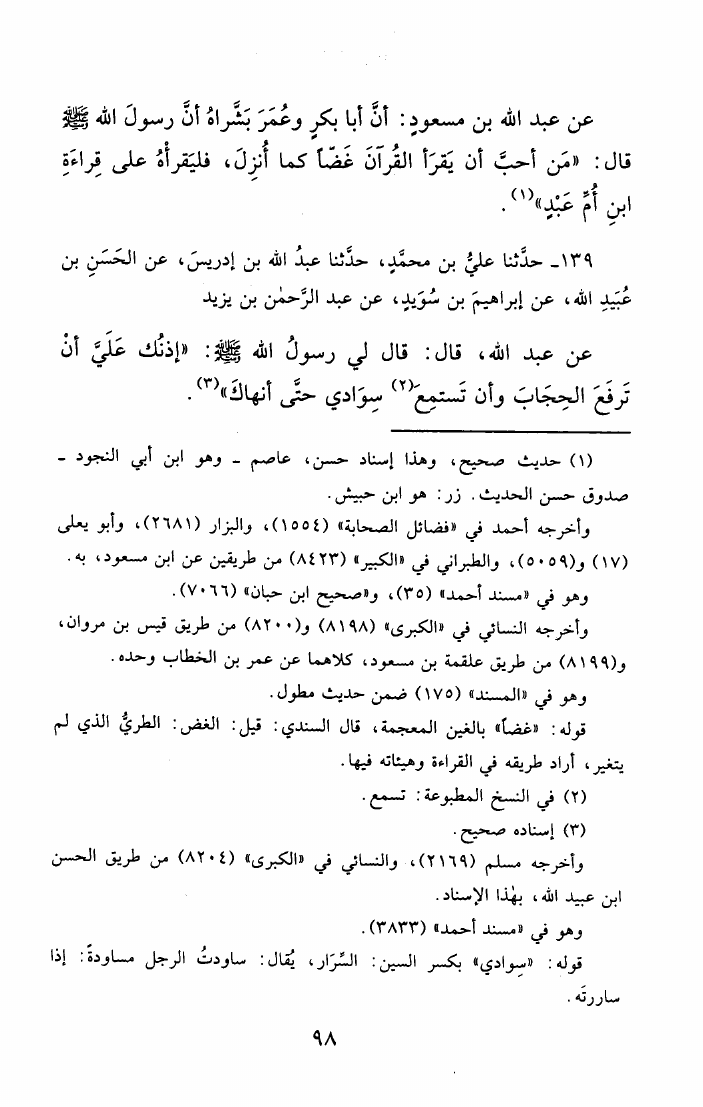 عن عبد الله بن مسعودٍ: أنَّ أبا بكرٍ وعُمَرَ بَشَّراهُ أنَّ رسولَ الله ﷺ
قال: «مَن أحبَّ أن يَقرَأ القُرآنَ غَضّاً كما أُنزِلَ، فليَقرأْهُ على قِراءَةِ
ابنِ أُمِّ عَبْدٍ»(١).
١٣٩ـ حدَّثنا عليُّ بن محمَّدٍ، حدَّثنا عبدُ الله بن إدريسَ، عن الحَسَنِ بن
عُبَيدِ الله، عن إبراهيمَ بن سُوَيدٍ، عن عبد الرَّحمٰن بن يزيد
عن عبد الله، قال: قال لي رسولُ الله ﷺ: «إذنُك عَلَيَّ أنْ
تَرفَعَ الحِجَابَ وأن تَستمِعَ(٢) سِوَادي حتَّى أنهاكَ»(٣).
(١) حديث صحيح، وهذا إسناد حسن، عاصم ـ وهو ابن أبي النجود ـ
صدوق حسن الحديث. زر: هو ابن حبيش.
وأخرجه أحمد في «فضائل الصحابة» (١٥٥٤)، والبزار (٢٦٨١)، وأبو يعلى
(١٧) و(٥٠٥٩)، والطبراني في «الكبير» (٨٤٢٣) من طريقين عن ابن مسعود، به.
وهو في «مسند أحمد» (٣٥)، و«صحيح ابن حبان» (٧٠٦٦).
وأخرجه النسائي في «الكبرى» (٨١٩٨) و(٨٢٠٠) من طريق قيس بن مروان،
و(٨١٩٩) من طريق علقمة بن مسعود، كلاهما عن عمر بن الخطاب وحده.
وهو في «المسند» (١٧٥) ضمن حديث مطول.
قوله: «غضاً» بالغين المعجمة، قال السندي: قيل: الغض: الطريُّ الذي لم
يتغير، أراد طريقه في القراءة وهيئاته فيها.
(٢) في النسخ المطبوعة: تسمع.
(٣) إسناده صحيح.
وأخرجه مسلم (٢١٦٩)، والنسائي في «الكبرى» (٨٢٠٤) من طريق الحسن
ابن عبيد الله، بهٰذا الإسناد.
وهو في «مسند أحمد» (٣٨٣٣).
قوله: «سِوادي» بكسر السين: السِّرَار، يُقال: ساودتُ الرجل مساودةً: إذا
ساررتَه.
٩٨